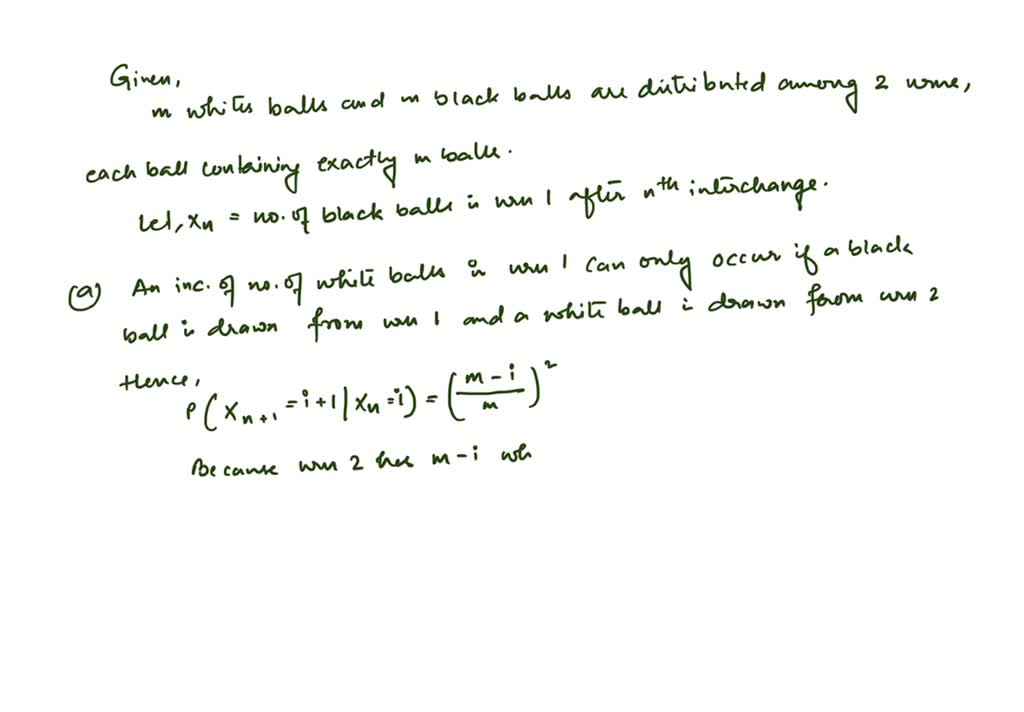 Given,
m whites balls and m black balls are distributed among 2 urns,
each ball containing exactly m balls.
Let, Xn = no. of black balls in urn 1 after nth interchange.
(a) An inc. of no. of white balls in urn 1 can only occur if a black
ball is drawn from urn 1 and a white ball is drawn from urn 2
Hence,
P(Xn+1 = i+1 | Xn = i) = ((m-i)/m)^2
Because urn 2 has m-i wh